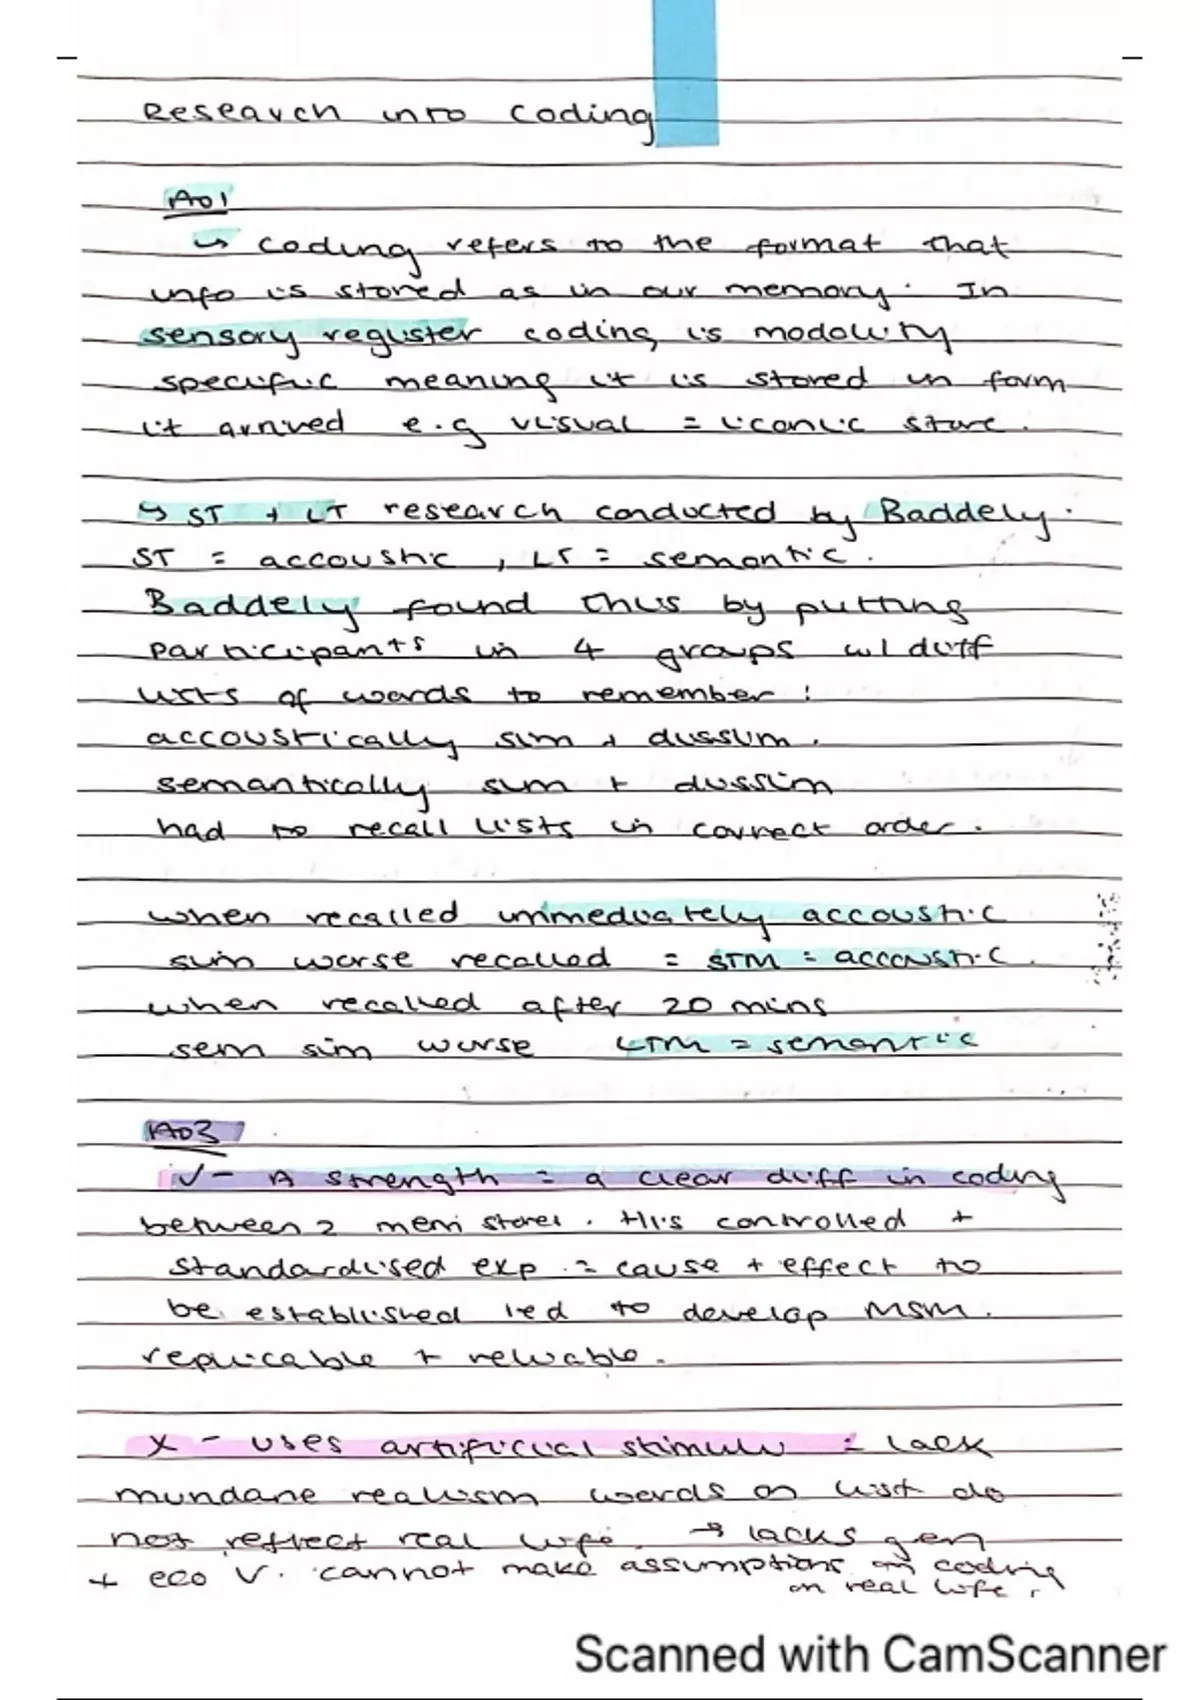 Research into coding
A01
↳ coding refers to the format that
info is stored as in our memory. In
sensory register coding is modality
specific meaning it is stored in form
it arrived e.g visual = iconic store.
↳ ST + LT research conducted by Baddely.
ST = accoustic, LT = semantic.
Baddely found this by putting
participants in 4 groups w/ diff
lists of words to remember:
accoustically sim + dissim.
semantically sim + dissim
had to recall lists in correct order.
when recalled immediately accoustic
sim worse recalled = STM = accoustic.
when recalled after 20 mins
sem sim worse LTM = semantic
A03
✓ - A strength = a clear diff in coding
between 2 mem stores. His controlled +
standardised exp. = cause + effect to
be established led to develop MSM.
replicable + reliable.
X - uses artificial stimuli = lack
mundane realism words on list do
not reflect real life. → lacks gen
+ eco V. cannot make assumptions on coding
on real life.
Scanned with CamScanner